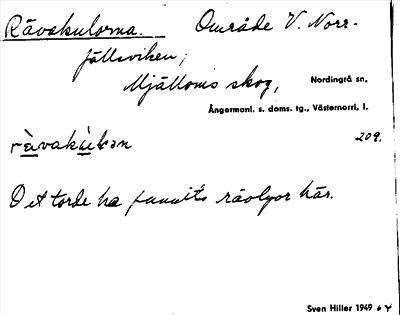 Rävakulorna. Område V. Norr-
fällsviken;
Mjälloms skog, Nordingrå sn,
Ångermanl. s. doms. tg., Västernorrl. l.
209.
Det torde ha funnits rävlyor här.
Sven Hiller 1949